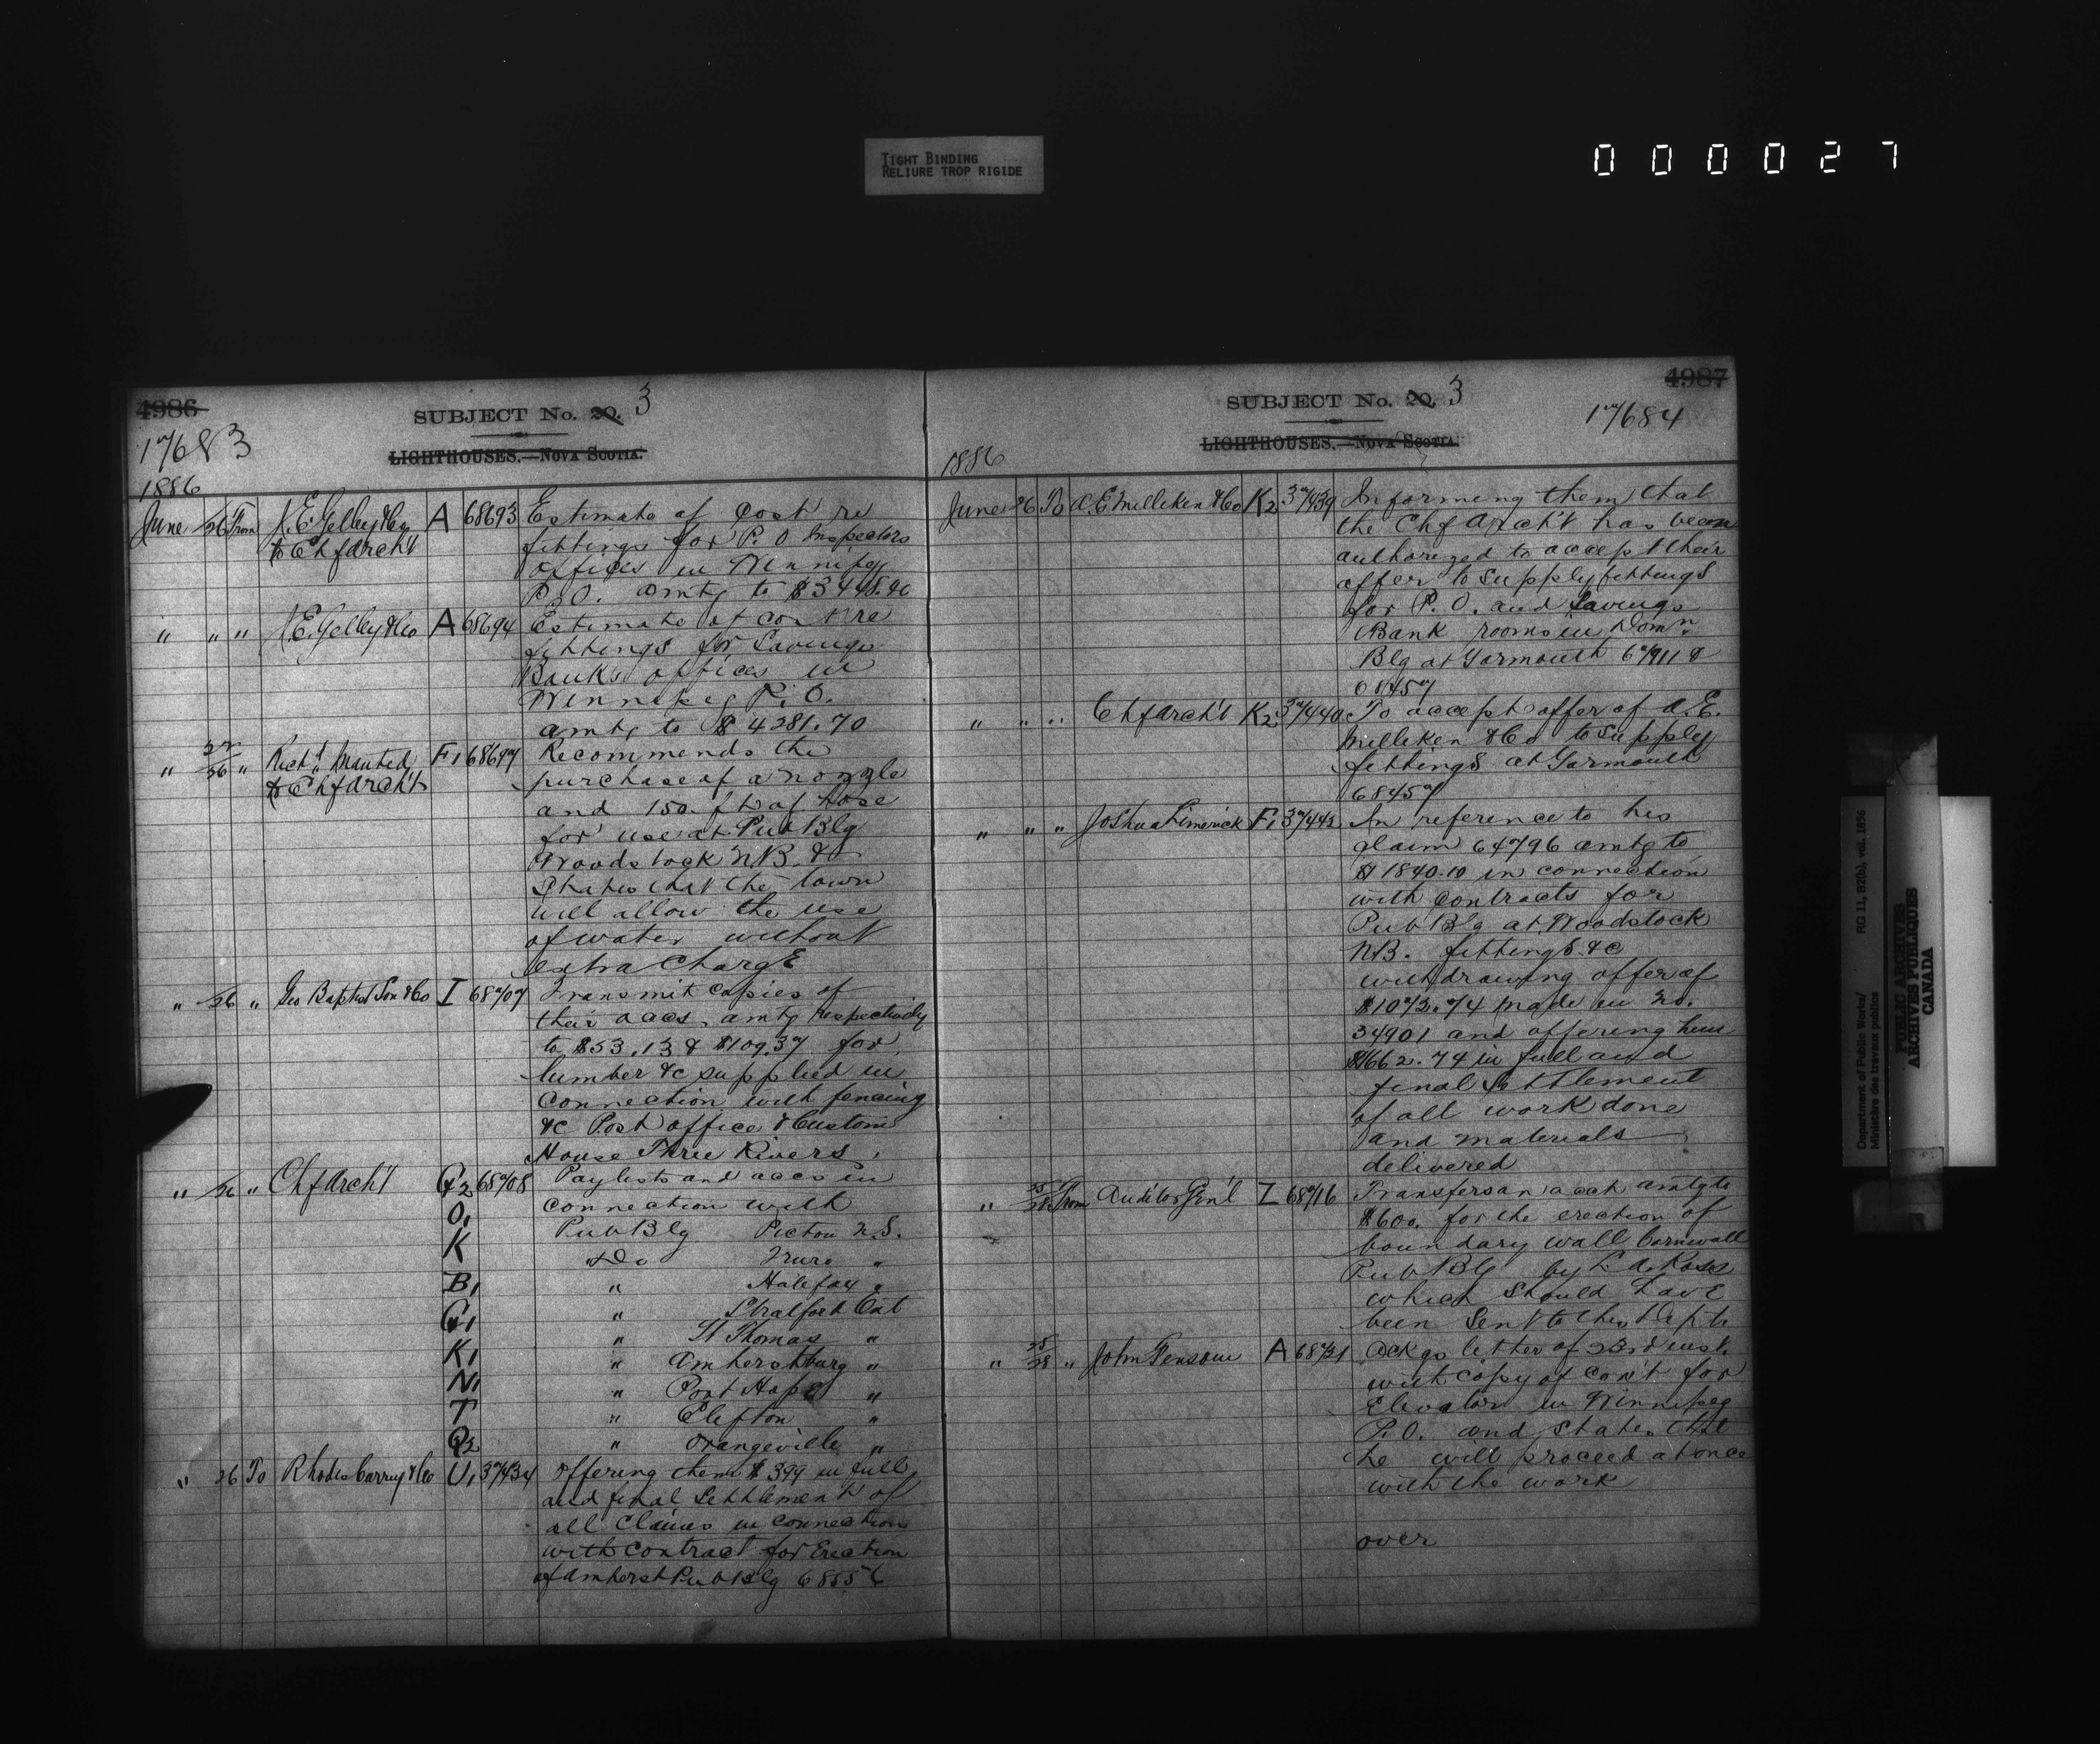 TIGHT BINDING
RELIURE TROP RIGIDE
000027
4986
SUBJECT No. 20. 3
17683
LIGHTHOUSES.—NOVA SCOTIA.
1886
June 26 From J. E. Gelley & Co A 68693 Estimate of cost re
to Chf Arch't fittings for P. O Inspectors
offices in Winnipeg
P. O. amtg to $3448.90
" " " J. E. Gelley & Co A 68694 Estimate of cost re
fittings for Savings
Banks offices in
Winnipeg P. O.
amtg to $4281.70
" 26 " Rich'd F, 68697 Recommends the
to Chf Arch't purchase of a nozzle
and 150 ft of hose
for use at Pub Blg
Woodstock N.B. &
States that the town
will allow the use
of water without
extra Charge
" 26 " Geo Baptist Son & Co I 68707 Transmit copies of
their accs. amtg respectively
to $53.13 & $109.37 for
lumber &c supplied in
connection with fencing
&c Post office & Custom
House Three Rivers.
" 26 " Chf Arch't G2 68708 Paylists and accs in
O, connection with
K Pub Blg Pictou N.S.
Do Truro "
B, " Halifax "
G, " Stratford Ont
" St Thomas "
K, " Amherstburg "
N, " Port Hope "
T " Clifton "
Q2 " Orangeville "
" 26 To Rhodes Curry & Co U, 37434 Offering them $399 in full
and final Settlement of
all Claims in connection
with contract for Erection
of Amherst Pub Blg 68556
4987
SUBJECT No. 20. 3
17684
LIGHTHOUSES.—NOVA SCOTIA.
1886
June 26 To A. E Milliken & Co K2 37439 Informing them that
the Chf Arch't has been
authorized to accept their
offer to supply fittings
for P. O. and Savings
Bank rooms in Domn
Blg at Yarmouth 67911 &
68457
" " " Chf Arch't K2 37440 To accept offer of A. E.
Milliken & Co to supply
fittings at Yarmouth
68457
" " " Joshua Limerick F, 37443 In reference to his
claim 64796 amtg to
$1840.10 in connection
with contracts for
Pub Bl'g at Woodstock
N.B. fittings &c
withdrawing offer of
$1073.74 made in no.
34901 and offering him
$1662.74 in full and
final settlement
of all work done
and materials
delivered
" 28 From Auditor Gen'l I 68716 Transfers an acct amtg to
$600. for the erection of
boundary wall Cornwall
Pub Blg by A. Ross
which should have
been Sent to this Dept
" 28 " John Fensom A 68731 Ackgs letter of 23rd inst.
with copy of con't for
Elevator in Winnipeg
P.O. and states that
he will proceed at once
with the work
over
Department of Public Works/ RG 11, B2(b), vol. 1856
Ministère des travaux publics
PUBLIC ARCHIVES
ARCHIVES PUBLIQUES
CANADA